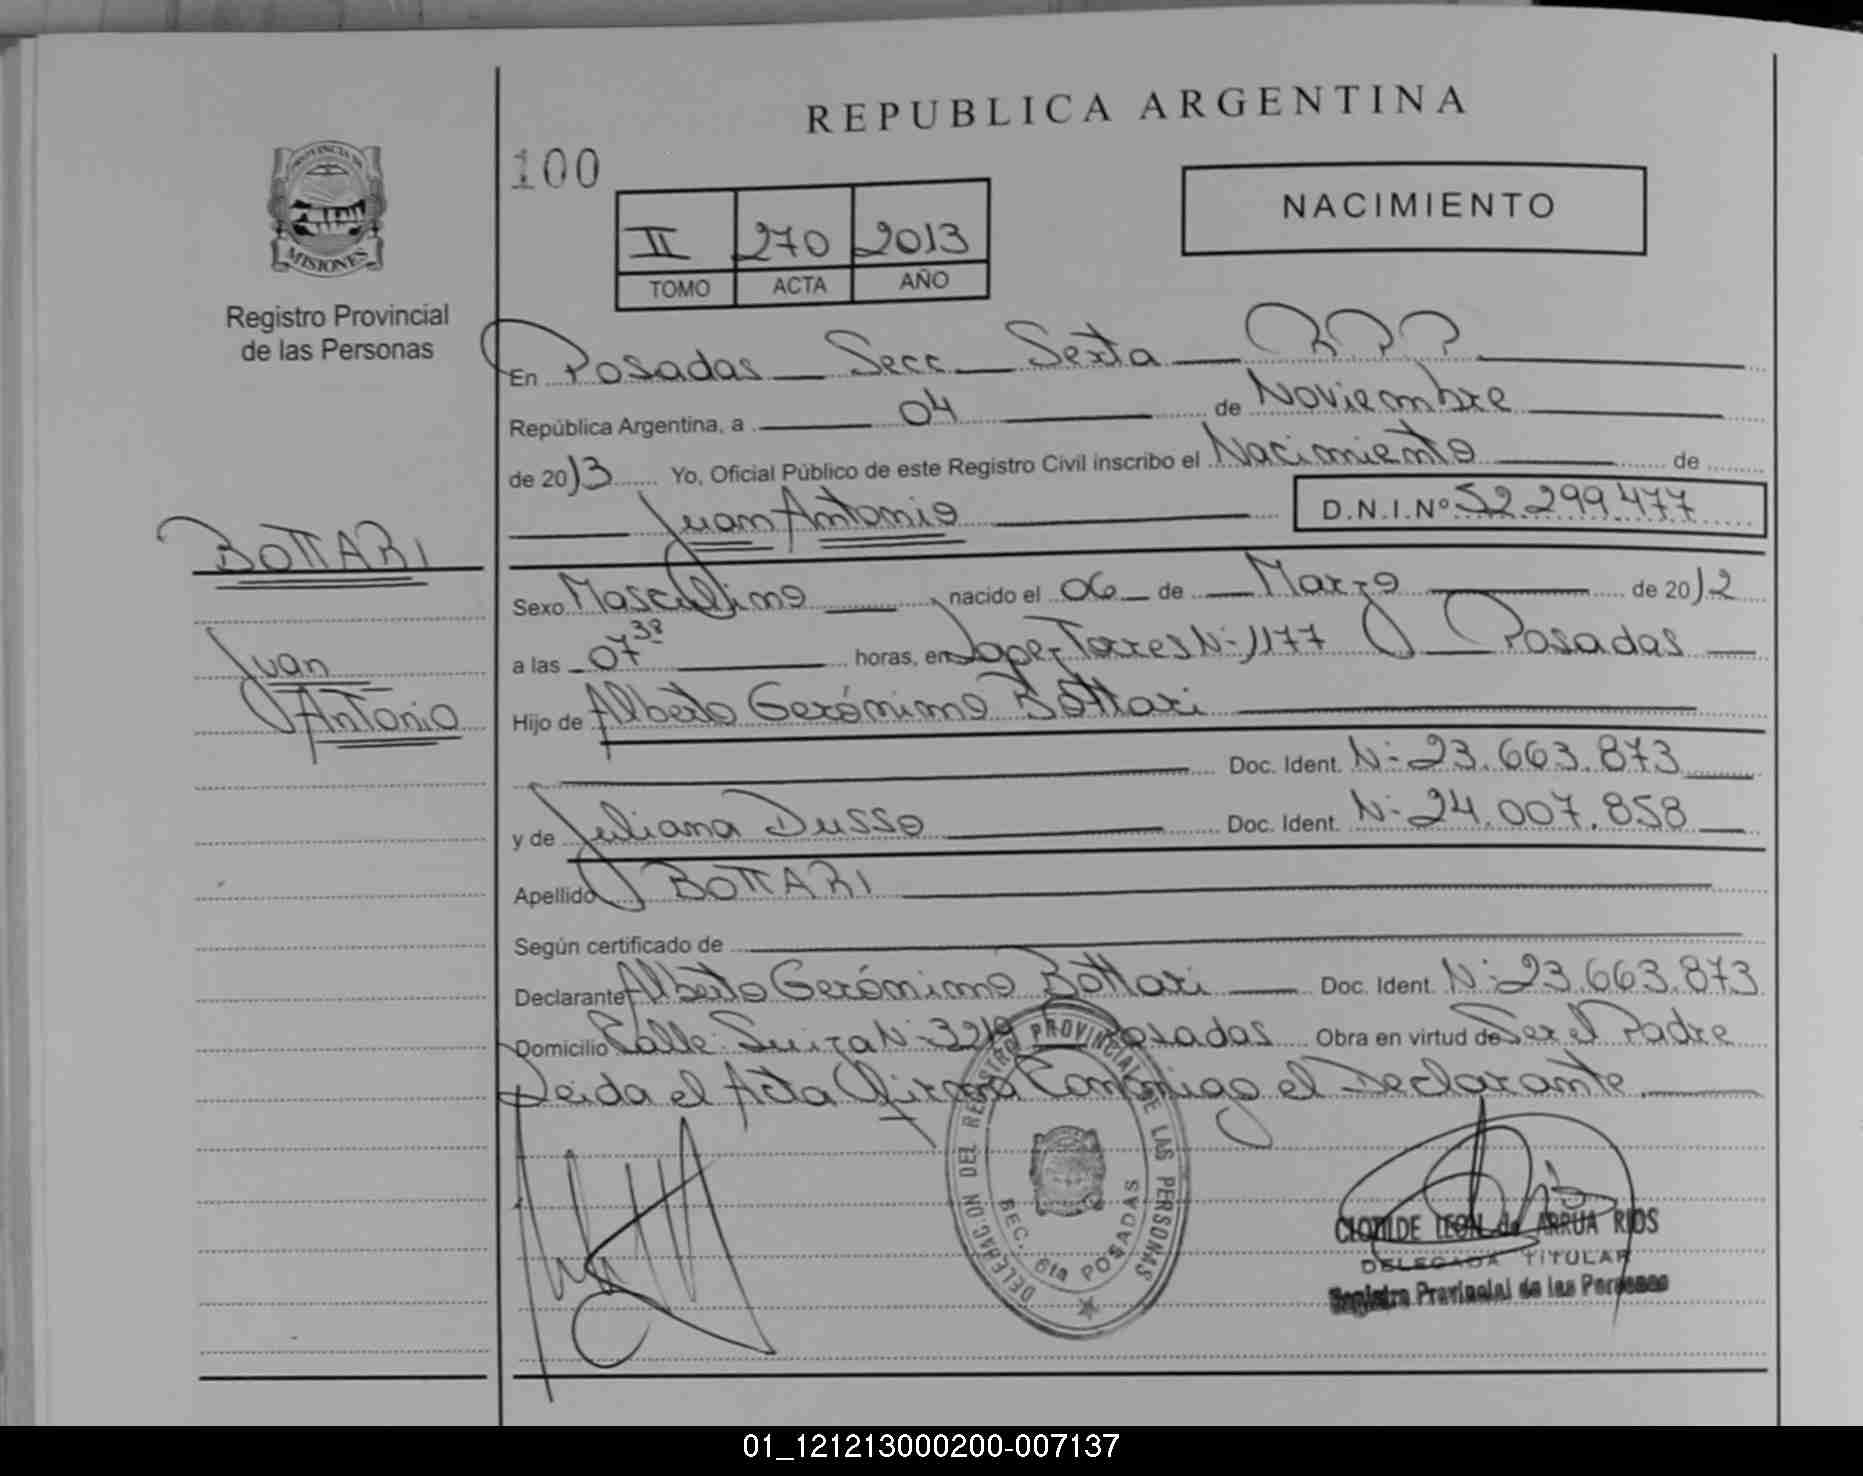 REPUBLICA ARGENTINA
PROVINCIA DE
MISIONES
Registro Provincial
de las Personas
100
NACIMIENTO
II 270 2013
TOMO ACTA AÑO
En Posadas Secc Sexta R.P.P.
República Argentina, a 04 de Noviembre
de 2013 Yo, Oficial Público de este Registro Civil inscribo el Nacimiento de
Juan Antonio D.N.I.Nº 52.299.477
BOTTARI
Juan
Antonio
Sexo Masculino nacido el 06 de Marzo de 2012
a las 07 38 horas, en Lopez Torres Nº 1177 Posadas
Hijo de Alberto Gerónimo Bottari
Doc. Ident. Nº 23.663.873
y de Juliana Dusso Doc. Ident. Nº 24.007.858
Apellido BOTTARI
Según certificado de
Declarante Alberto Gerónimo Bottari Doc. Ident. Nº 23.663.873
Domicilio Calle Suiza Nº Posadas Obra en virtud de Ser el Padre
Leida el Acta Firma Conmigo el Declarante
DELEGACION DEL REGISTRO PROVINCIAL DE LAS PERSONAS
SEC. 6ta POSADAS
CLOTILDE LEON de ARRUA RIOS
DELEGADA TITULAR
Registro Provincial de las Personas
01_121213000200-007137